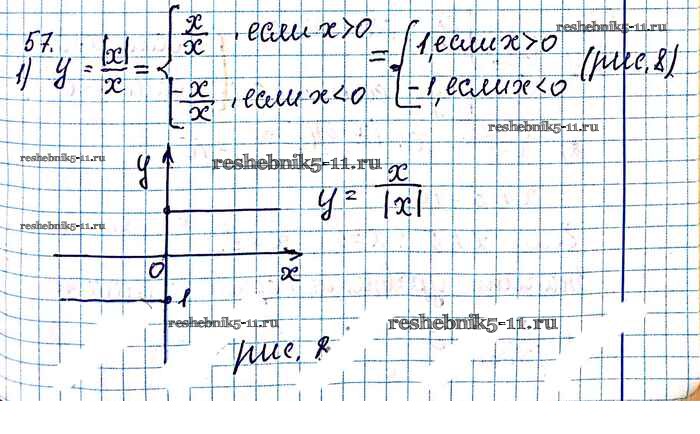 57.
1) y = |x|/x = { x/x, если x>0 = { 1, если x>0 (рис. 8)
-x/x, если x<0 -1, если x<0
reshebnik5-11.ru
reshebnik5-11.ru
reshebnik5-11.ru
y reshebnik5-11.ru
y = x/|x|
reshebnik5-11.ru
0 x
1
reshebnik5-11.ru reshebnik5-11.ru
рис.